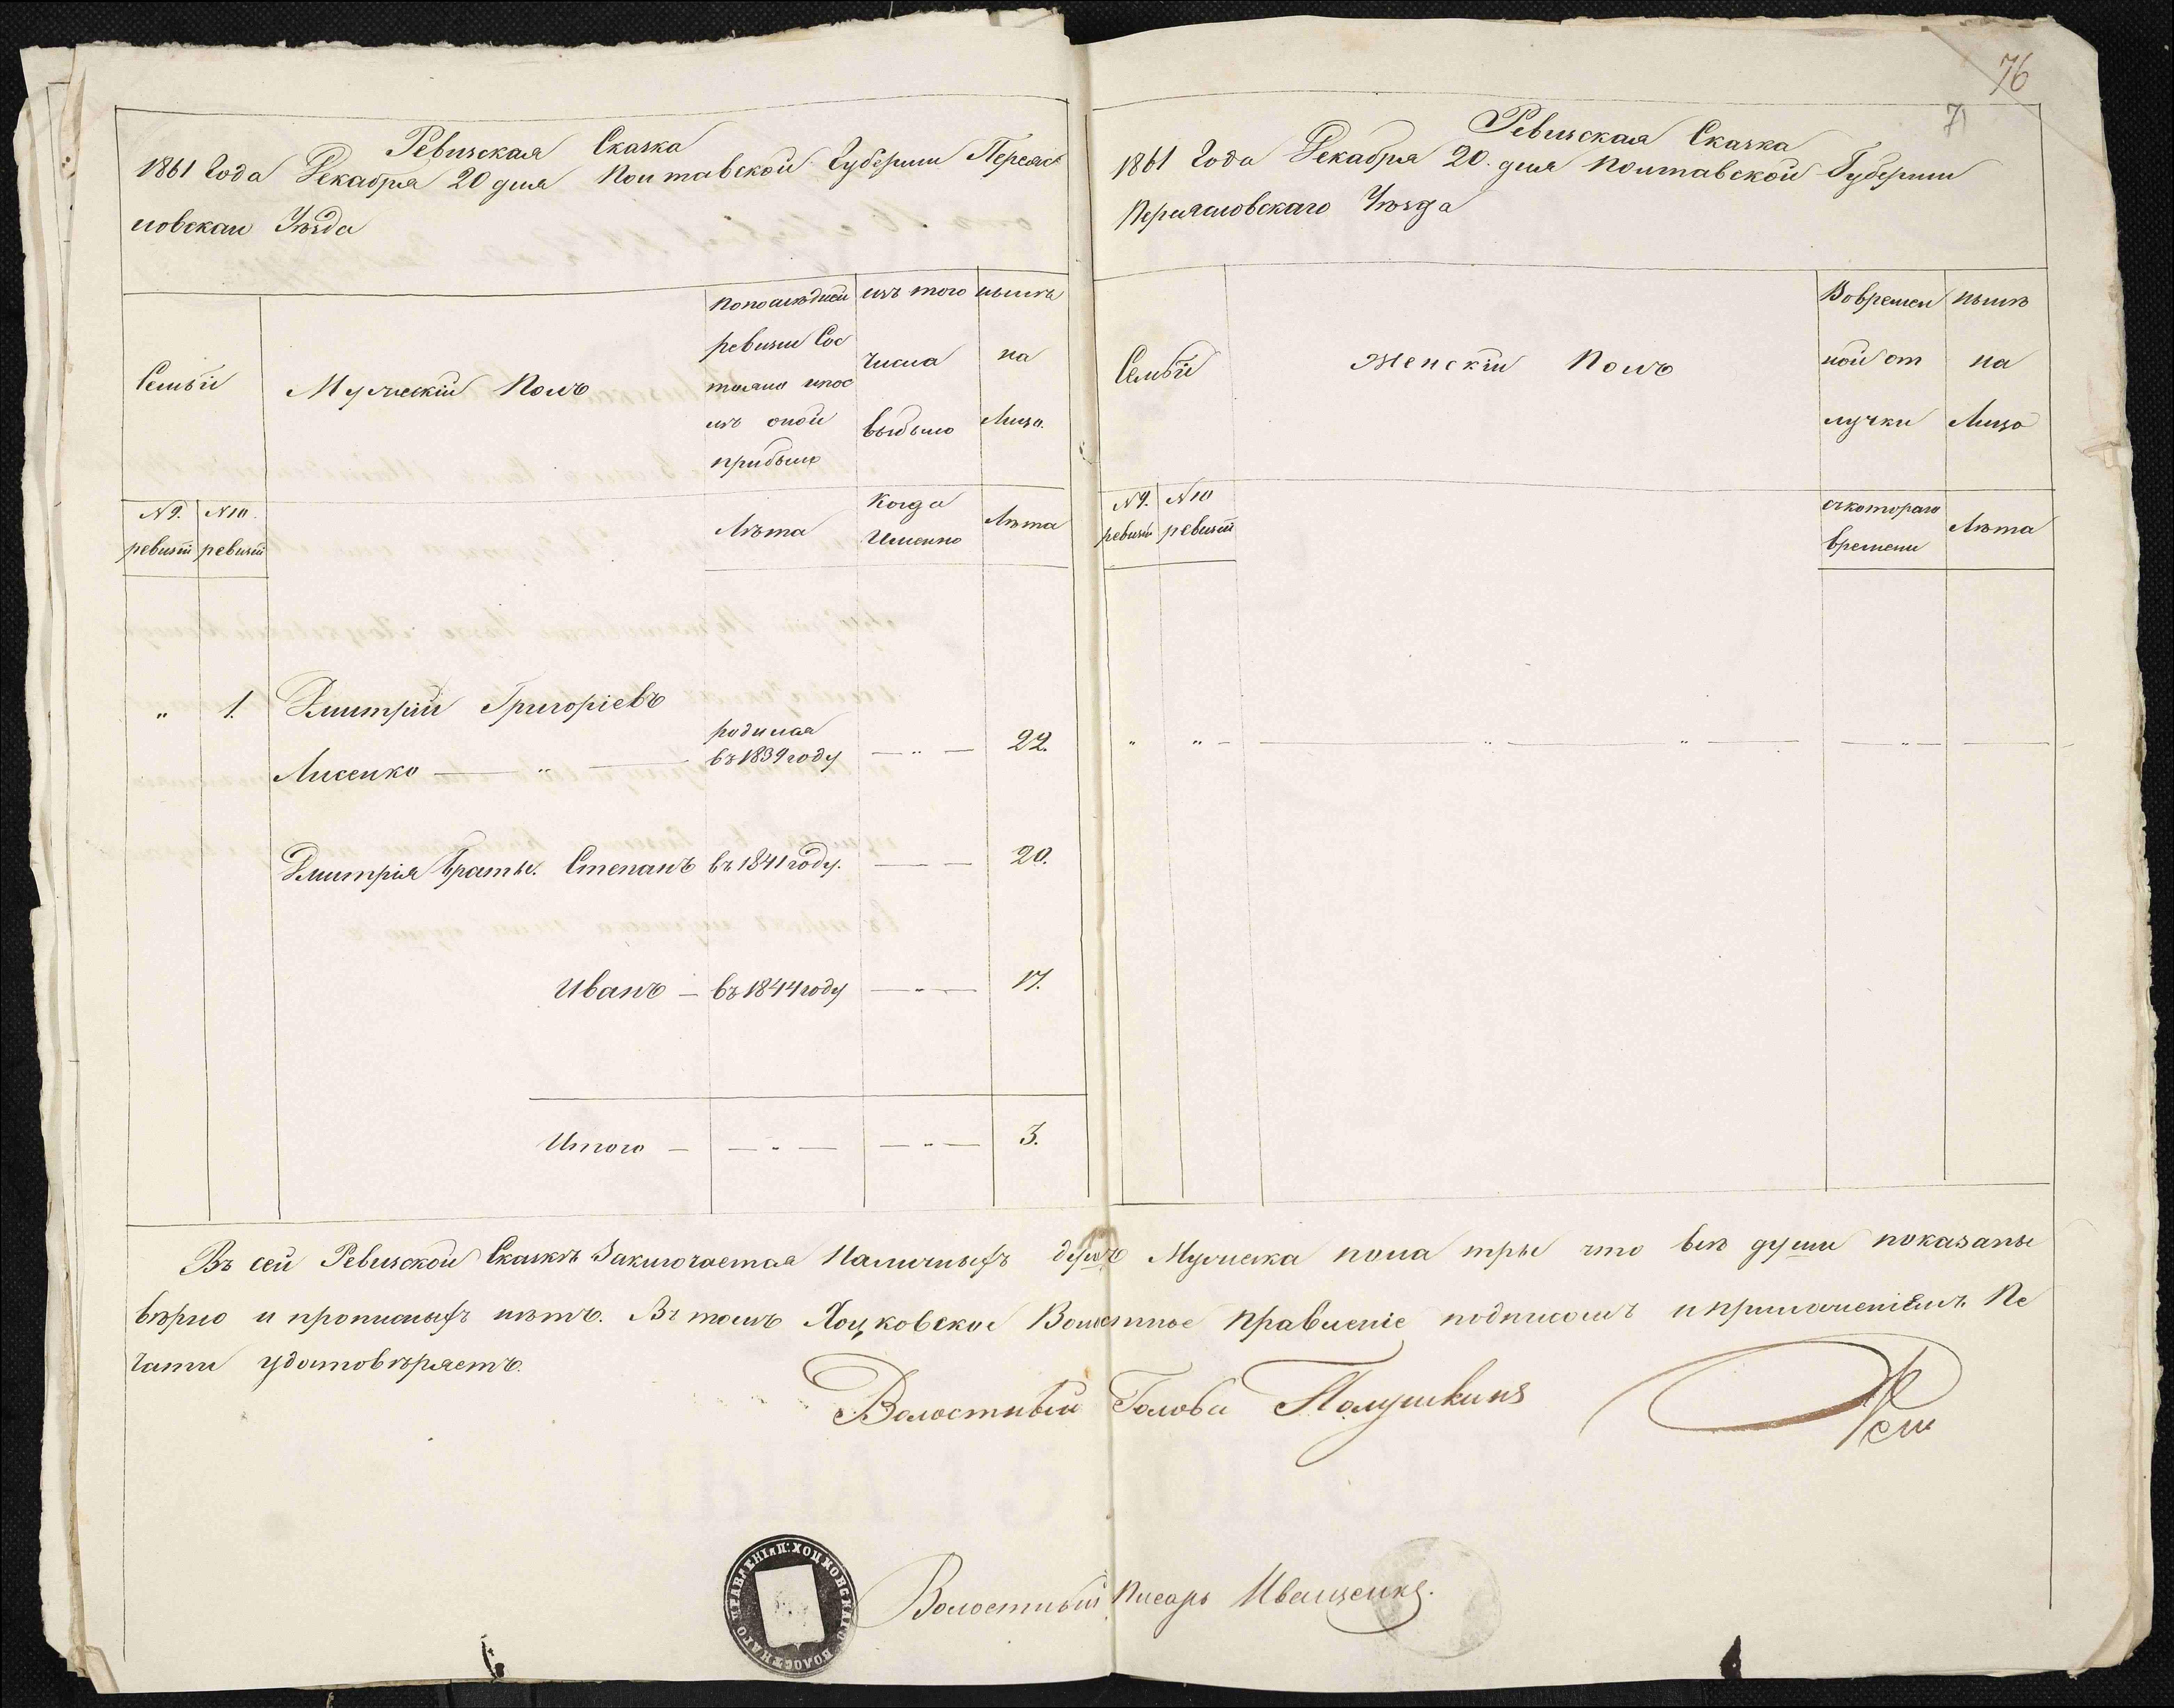 Ревизская Сказка
1861 Года Декабря 20 дня Полтавской Губернии Переяс
ловскаго Уѣзда
Семьи
Мужескій Полъ
По последней
ревизіи Сос
тояло и пос
лѣ оной
прибыло
изъ того
числа
выбыло
нынѣ
на
Лицо.
№ 9. ревизіи
№ 10. ревизіи
Лѣта
Когда
Именно
Лѣта
„ 1. Дмитрій Григоріевъ
Лисенко — „ — родился въ 1839 году — „ — 22.
Дмитрія братья. Степанъ въ 1841 году. — — 20.
Иванъ — въ 1844 году — „ — 17.
Итого — — „ — — „ — 3.
76
71
Ревизская Сказка
1861 Года Декабря 20. дня Полтавской Губерніи
Переяловскаго Уѣзда
Семьи
Женскій Полъ
Во времен
ной от
лучки
нынѣ
на
Лицо
№ 9. ревизіи
№ 10 ревизіи
съ котораго
времени
Лѣта
„ „ — „ — „ — — „ — —
Въ сей Ревизской Сказкѣ Заключается Наличныхъ душъ Мужеска пола три что всѣ души показаны
вѣрно и прописныхъ нѣтъ. Въ томъ Хоцковское Волостное Правленіе подписомъ и приложеніемъ Пе
чати удостовѣряетъ.
Волостный Голова Полушкинъ
Волостный Писарь Иващенко.
П. ХОЦКОВСКАГО ВОЛОСТНАГО ПРАВЛЕНІЯ